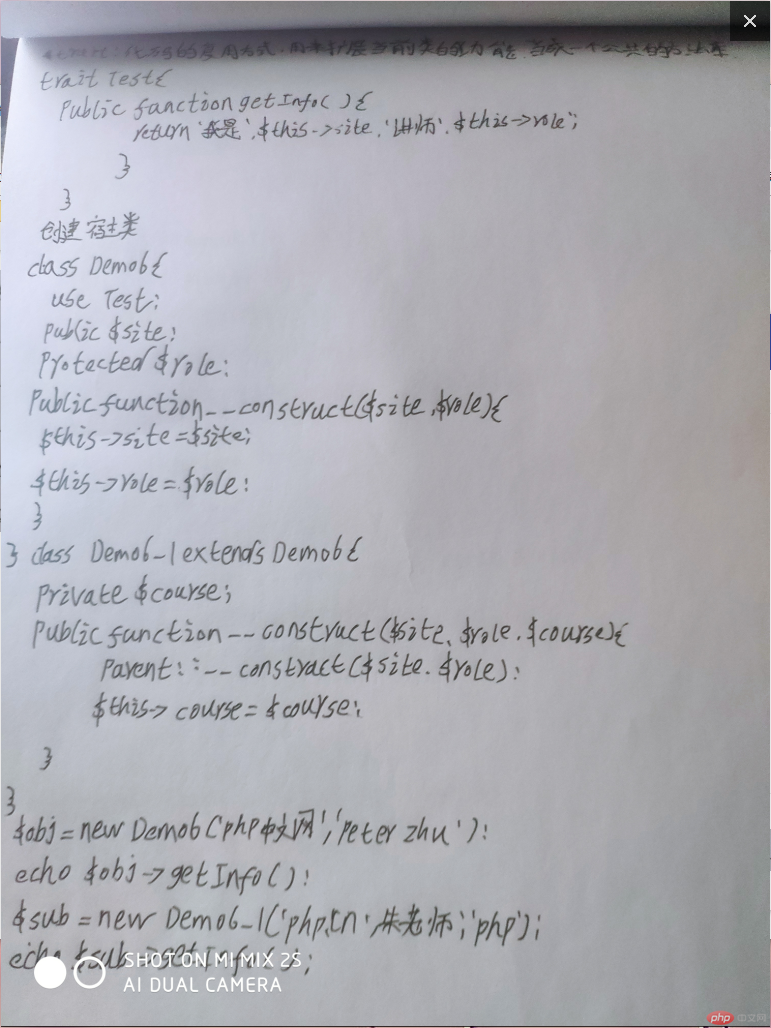 代码的复用方式,用来扩展当前类的功能,当成一个公共的方法集
trait Test{
Public function getInfo(){
return '我是'.$this->site.'讲师'.$this->role;
}
}
创建宿主类
class Demo6{
use Test;
public $site;
Protected $role;
Public function __construct($site,$role){
$this->site=$site;
$this->role=$role;
}
} class Demo6_1 extends Demo6{
Private $course;
Public function __construct($site,$role,$course){
Parent::__construct($site,$role);
$this->course=$course;
}
}
$obj=new Demo6('php中文网','Peter zhu');
echo $obj->getInfo();
$sub=new Demo6_1('php.cn',朱老师','php');
echo $sub->getInfo();
SHOT ON MI MIX 2S
AI DUAL CAMERA
php 中文网